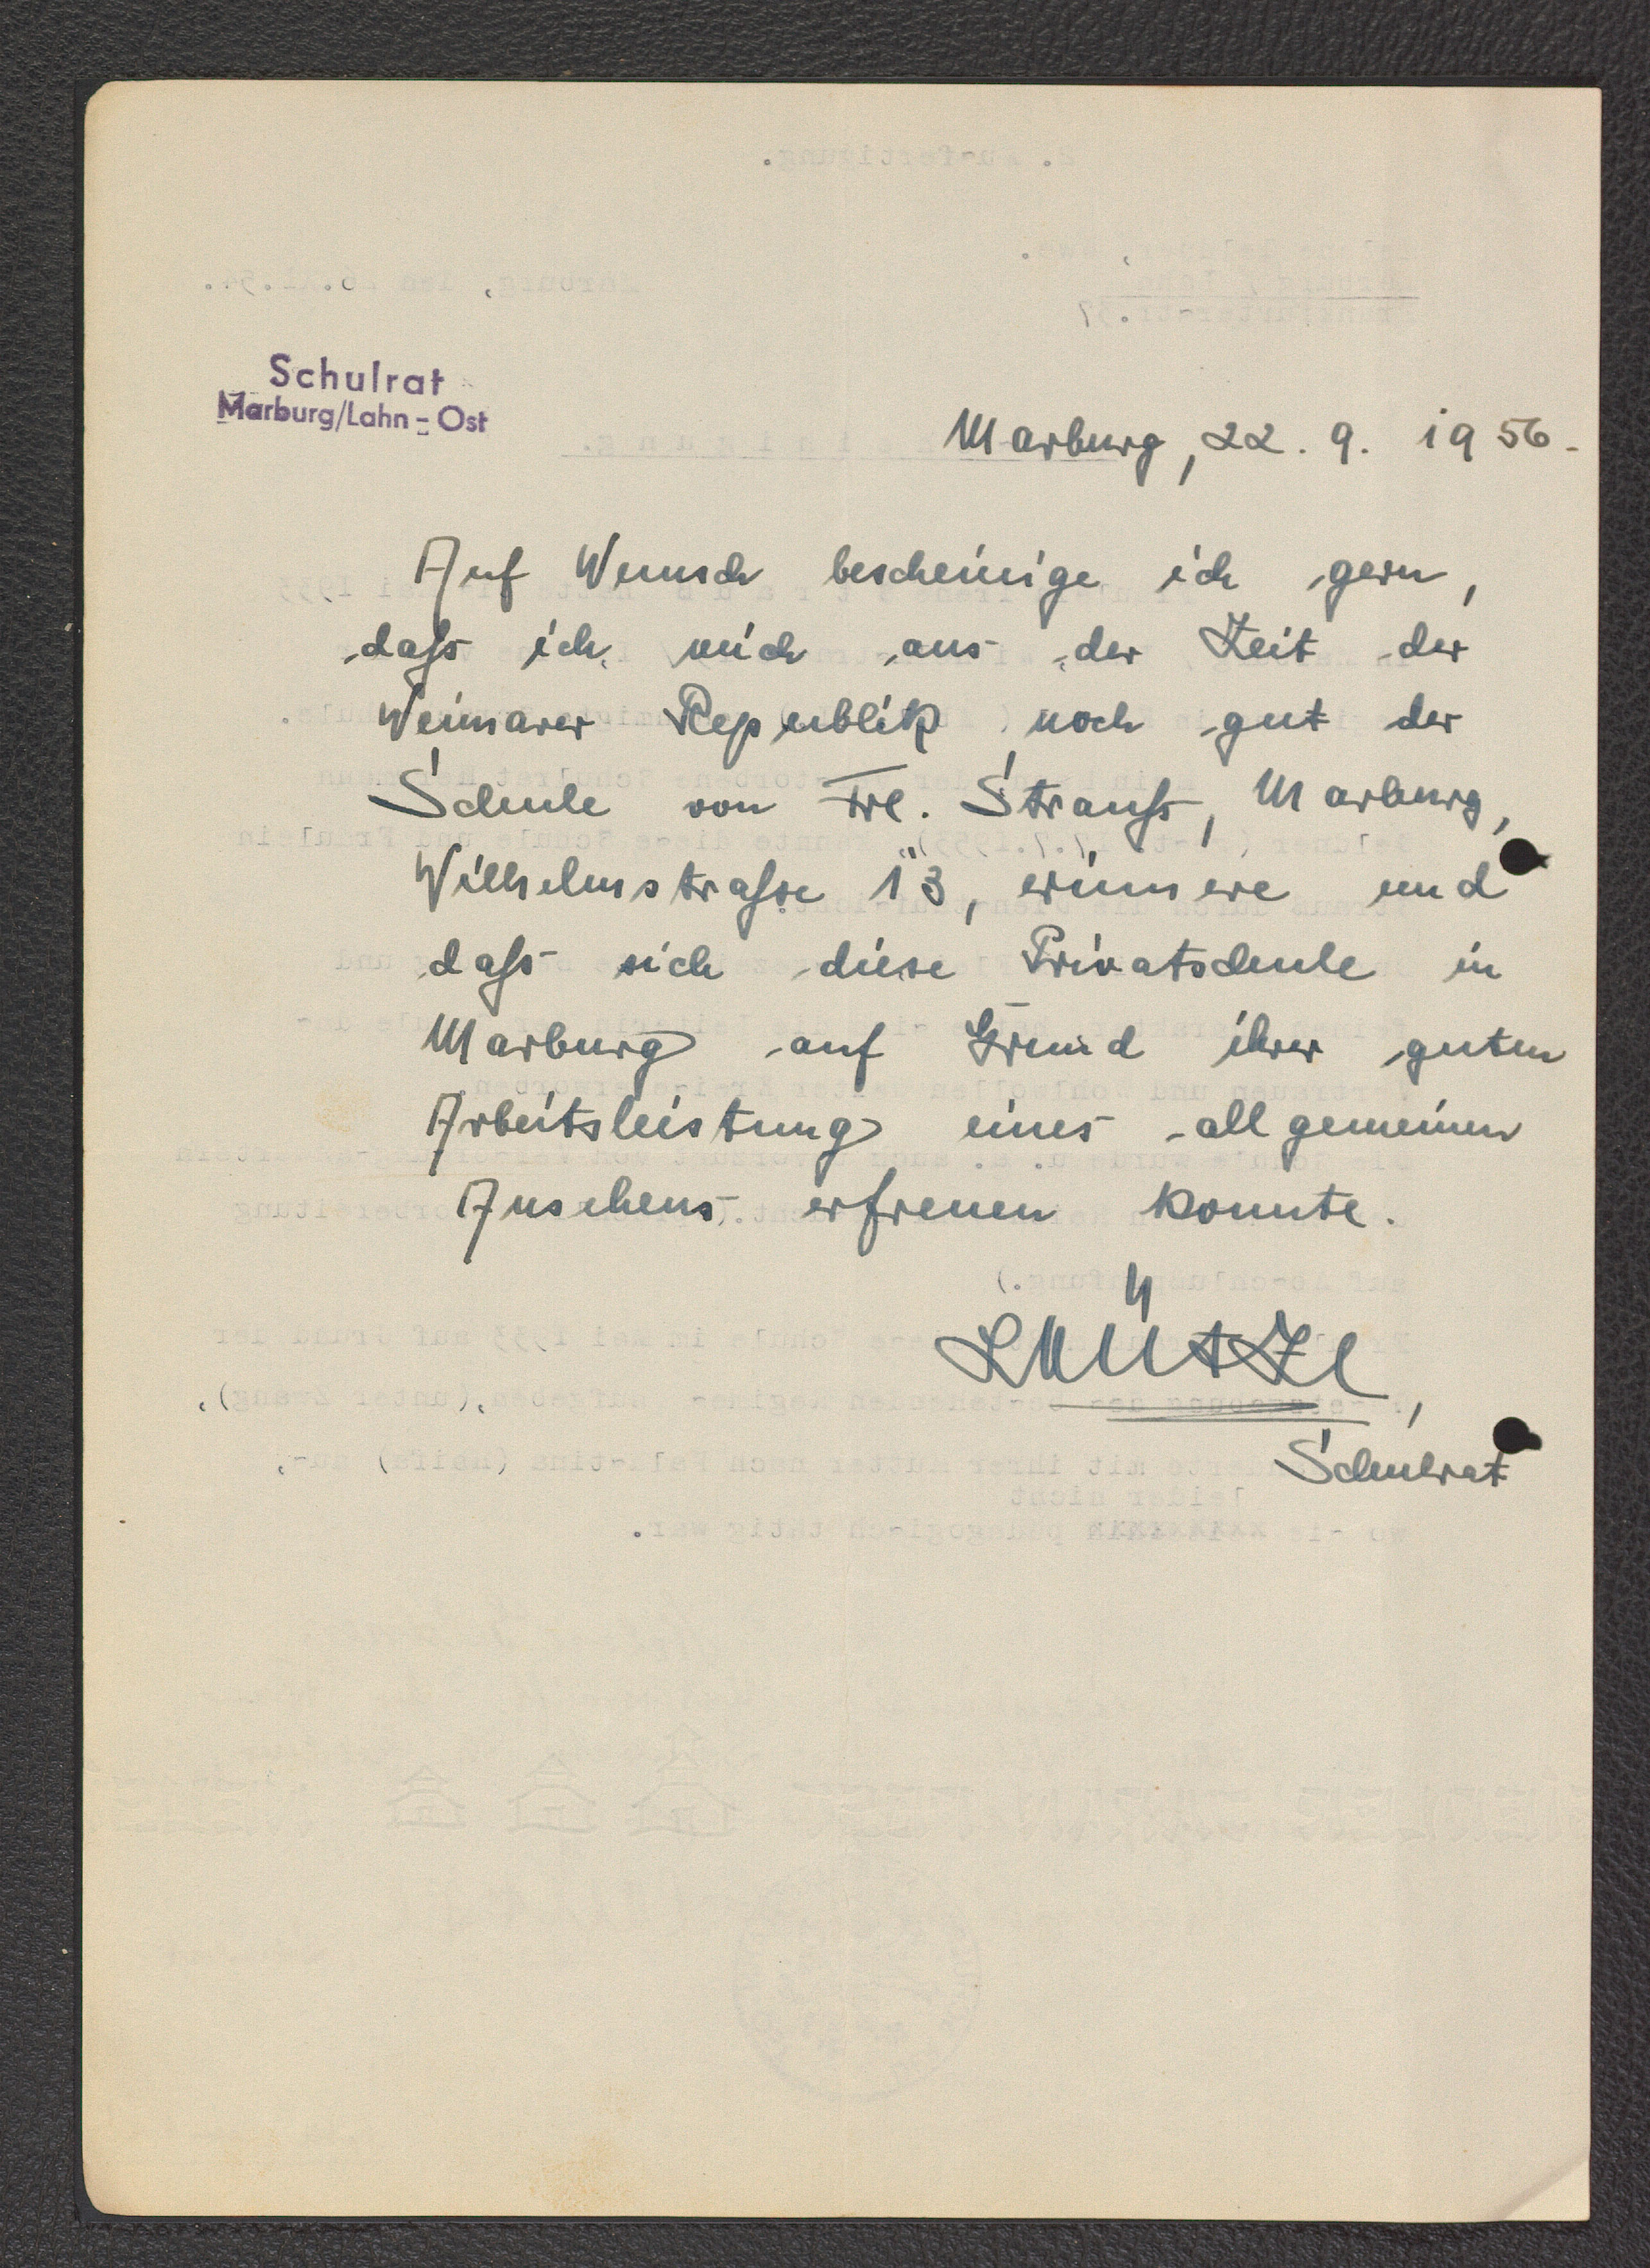 Schulrat
Marburg/Lahn-Ost
Marburg, 22. 9. 1956.
Auf Wunsch bescheinige ich gern,
daß ich mich aus der Zeit der
Weimarer Republik noch gut der
Schule von Frl. Strauß, Marburg,
Wilhelmstraße 13, erinnere und
daß sich diese Privatschule in
Marburg auf Grund ihrer guten
Arbeitsleistung eines allgemeinen
Ansehens erfreuen konnte.
Schulrat